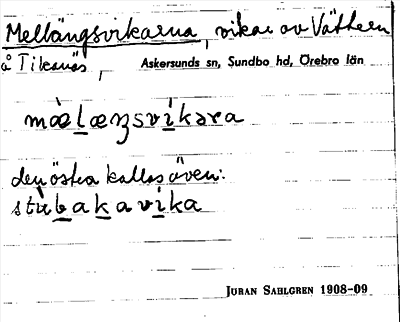 Mellängsvikarna, vikar av Vättern
å Tikanäs, Askersunds sn, Sundbo hd, Örebro län
mæ̀læŋsvikara
den östra kallas även:
stùbakavika
JÖRAN SAHLGREN 1908-09